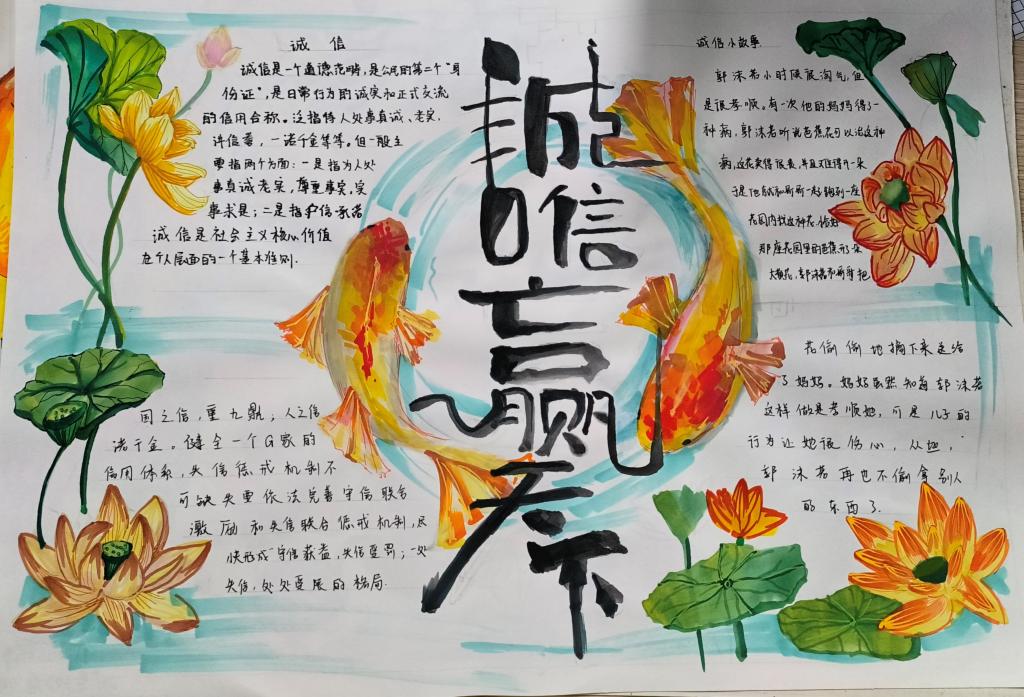 诚信
诚信是一个道德范畴，是公民的第二个“身
份证”，是日常行为的诚实和正式交流
的信用合称。泛指待人处事真诚、老实、
许信誉，一诺千金等等。但一般主
要指两个方面：一是指为人处
事真诚老实，尊重事实，实
事求是；二是指护信承诺
诚信是社会主义核心价值
在个人层面的一个基本准则.
国之信，重九鼎；人之信
诸千金。健全一个G家的
信用体系，失信惩戒机制不
可缺失要依法完善守信联合
激励和失信联合惩戒机制，尽
快形成守信获益，失信受罚；一处
失信，处处受展的格局.
誠信赢天下
诚信小故事
郭沫若小时候很淘气，但
是很孝顺。有一次他的妈妈得了一
种病，郭沫若听说芭焦花可以治这种
病，这花卖得很贵，并且又难得开一朵
于是他就和哥哥一起跑到一座
花园内找这种花，恰好
那座花园里的芭焦开了一朵
大概花，郭沫若和哥哥把
花偷偷地摘下来送给
了妈妈。妈妈虽然知道郭沫若
这样做是孝顺她，可是儿子的
行为让她很伤心，从此，
郭沫若再也不偷拿别人
的东西了.